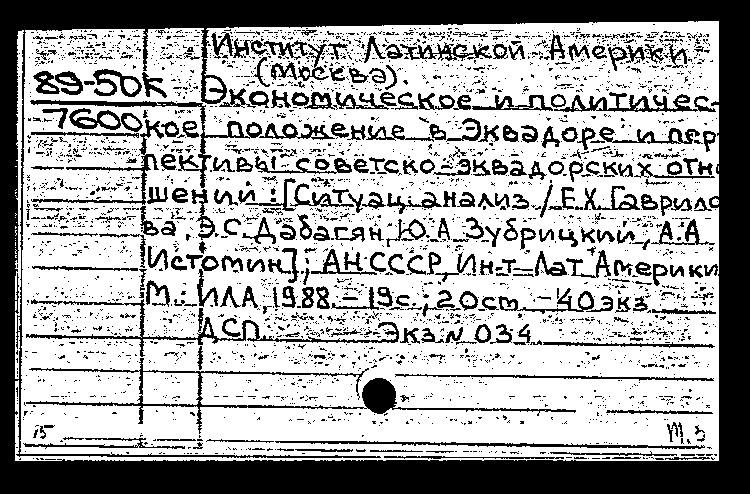 Институт Латинской Америки
(Москва).
89-50К Экономическое и политичес-
7600 кое положение в Эквадоре и пер
пективы советско-эквадорских отно
шений : [Ситуац. анализ / Е.Х. Гаврило
ва, Э.С. Дабагян, Ю.А. Зубрицкий, А.А.
Истомин] ; АН СССР, Ин-т Лат. Америки
М.: ИЛА, 1988. - 19 с. ; 20 см - 40 экз.
ДСП. Экз. N 034.
15 М. 3